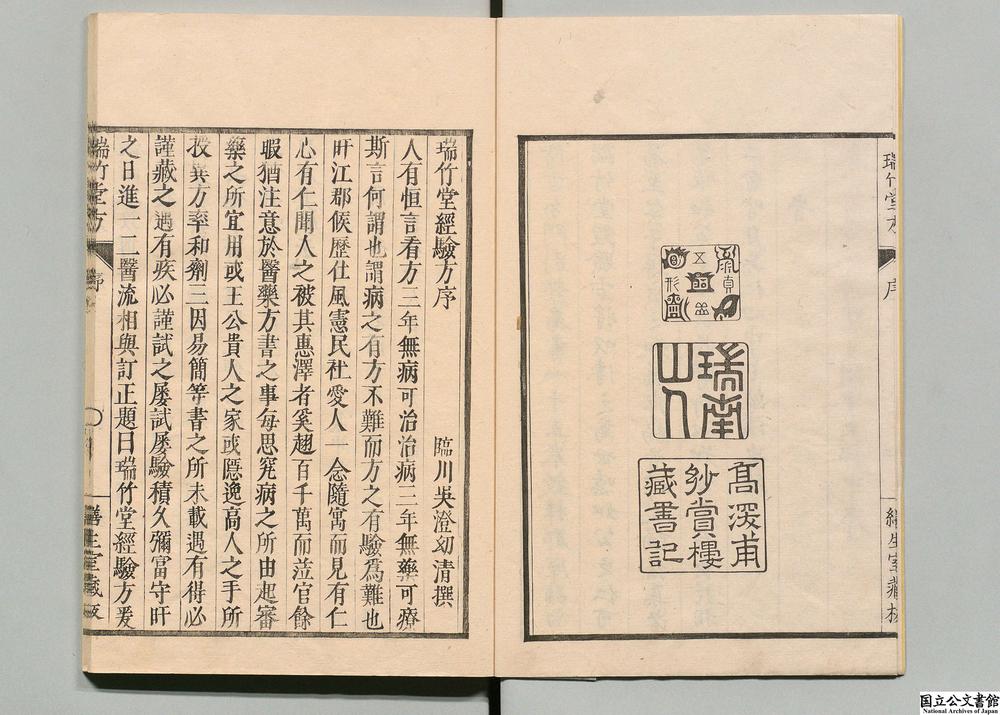 瑞竹堂方
序
繕生室藏板
瑞南
山人
髙深甫
妙賞樓
藏書記
瑞竹堂經驗方序
臨川吳澄幼清撰
人有恒言看方三年無病可治治病三年無藥可療
斯言何謂也謂病之有方不難而方之有驗爲難也
旴江郡侯歷仕風憲民社愛人一念隨寓而見有仁
心有仁聞人之被其惠澤者奚趐百千萬而涖官餘
暇猶注意於醫藥方書之事每思究病之所由起審
藥之所宜用或王公貴人之家或隱逸高人之手所
授異方率和劑三因易簡等書之所未載遇有得必
謹藏之遇有疾必謹試之屢試屢驗積久彌富守旴
之日進一二醫流相與訂正題曰瑞竹堂經驗方爰
瑞竹堂方
序
一
繕生室藏板
国立公文書館
National Archives of Japan